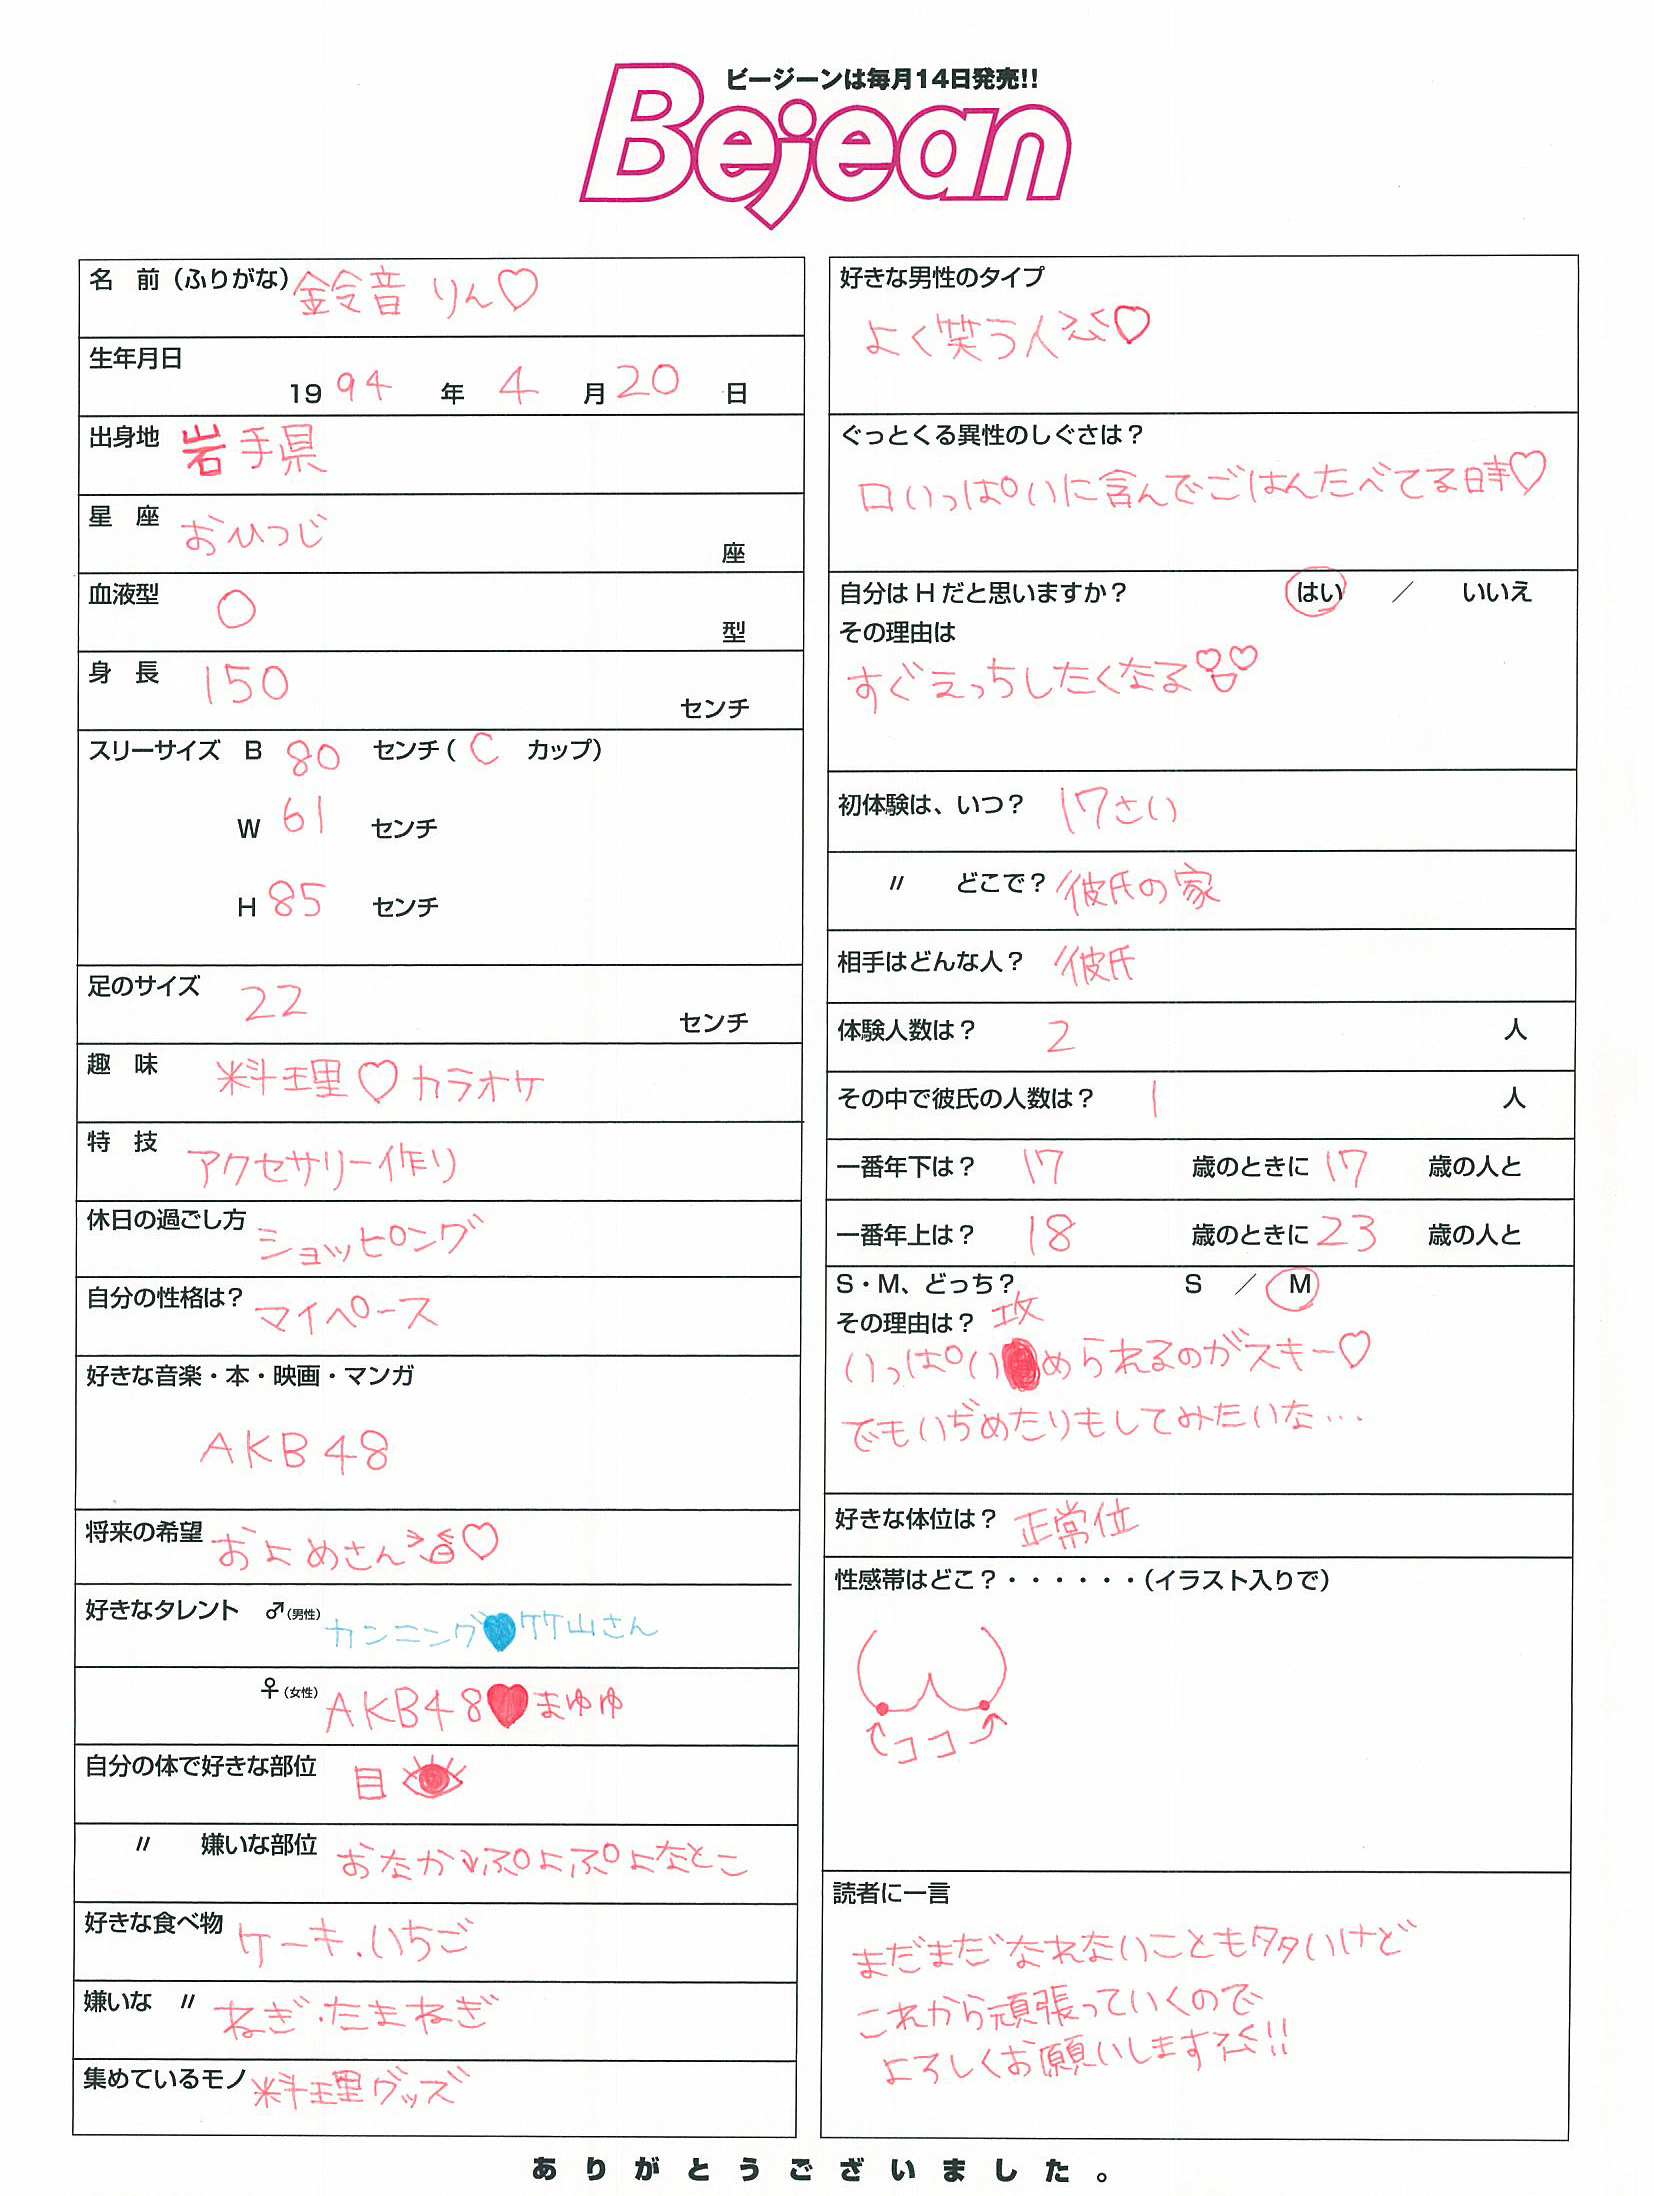 ビージーンは毎月14日発売!!
Bejean
名 前（ふりがな） 鈴音 りん♡
生年月日
19 94 年 4 月 20 日
出身地 岩手県
星 座 おひつじ 座
血液型 O 型
身 長 150 センチ
スリーサイズ B 80 センチ（ C カップ）
W 61 センチ
H 85 センチ
足のサイズ 22 センチ
趣 味 料理♡カラオケ
特 技 アクセサリー作り
休日の過ごし方 ショッピング
自分の性格は？ マイペース
好きな音楽・本・映画・マンガ
AKB48
将来の希望 およめさん♡
好きなタレント ♂（男性） カンニング♥竹山さん
♀（女性） AKB48♥まゆゆ
自分の体で好きな部位 目
〃 嫌いな部位 おなか↘ぷよぷよなとこ
好きな食べ物 ケーキ.いちご
嫌いな 〃 ねぎ.たまねぎ
集めているモノ 料理グッズ
好きな男性のタイプ
よく笑う人♡
ぐっとくる異性のしぐさは？
口いっぱいに含んでごはんたべてる時♡
自分はHだと思いますか？ はい ／ いいえ
その理由は
すぐえっちしたくなる
初体験は、いつ？ 17さい
〃 どこで？ 彼氏の家
相手はどんな人？ 彼氏
体験人数は？ 2 人
その中で彼氏の人数は？ 1 人
一番年下は？ 17 歳のときに 17 歳の人と
一番年上は？ 18 歳のときに 23 歳の人と
S・M、どっち？ S ／ M
その理由は？
いっぱい攻められるのがスキー♡
でもいぢめたりもしてみたいな…
好きな体位は？ 正常位
性感帯はどこ？・・・・・・（イラスト入りで）
ココ
読者に一言
まだまだなれないことも多いけど
これから頑張っていくので
よろしくお願いします!!
ありがとうございました。